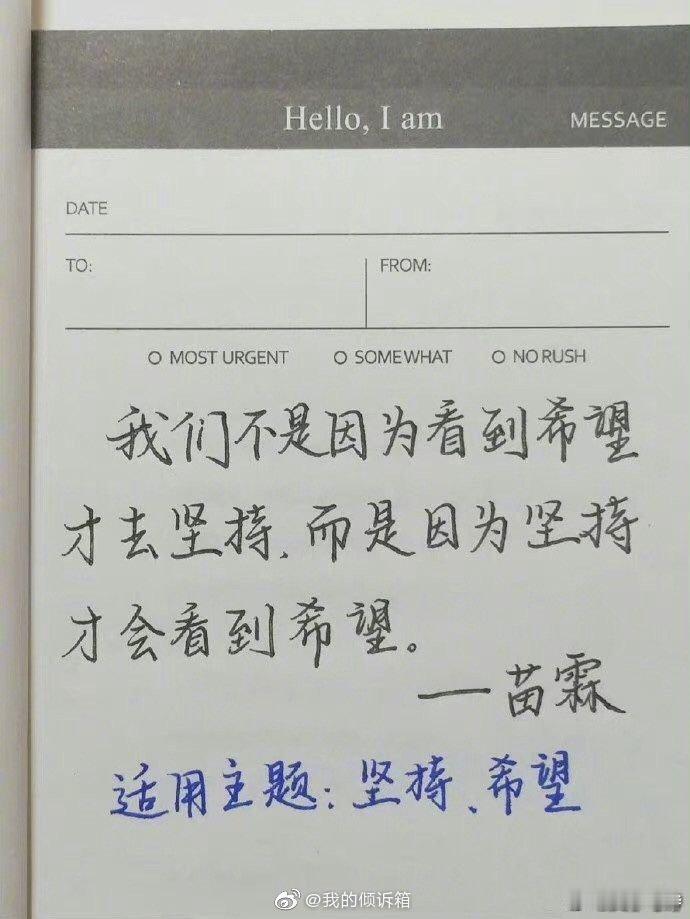 Hello, I am
MESSAGE
DATE
TO:
FROM:
O MOST URGENT O SOMEWHAT O NO RUSH
我们不是因为看到希望
才去坚持,而是因为坚持
才会看到希望。
——苗霖
适用主题:坚持、希望
@我的倾诉箱